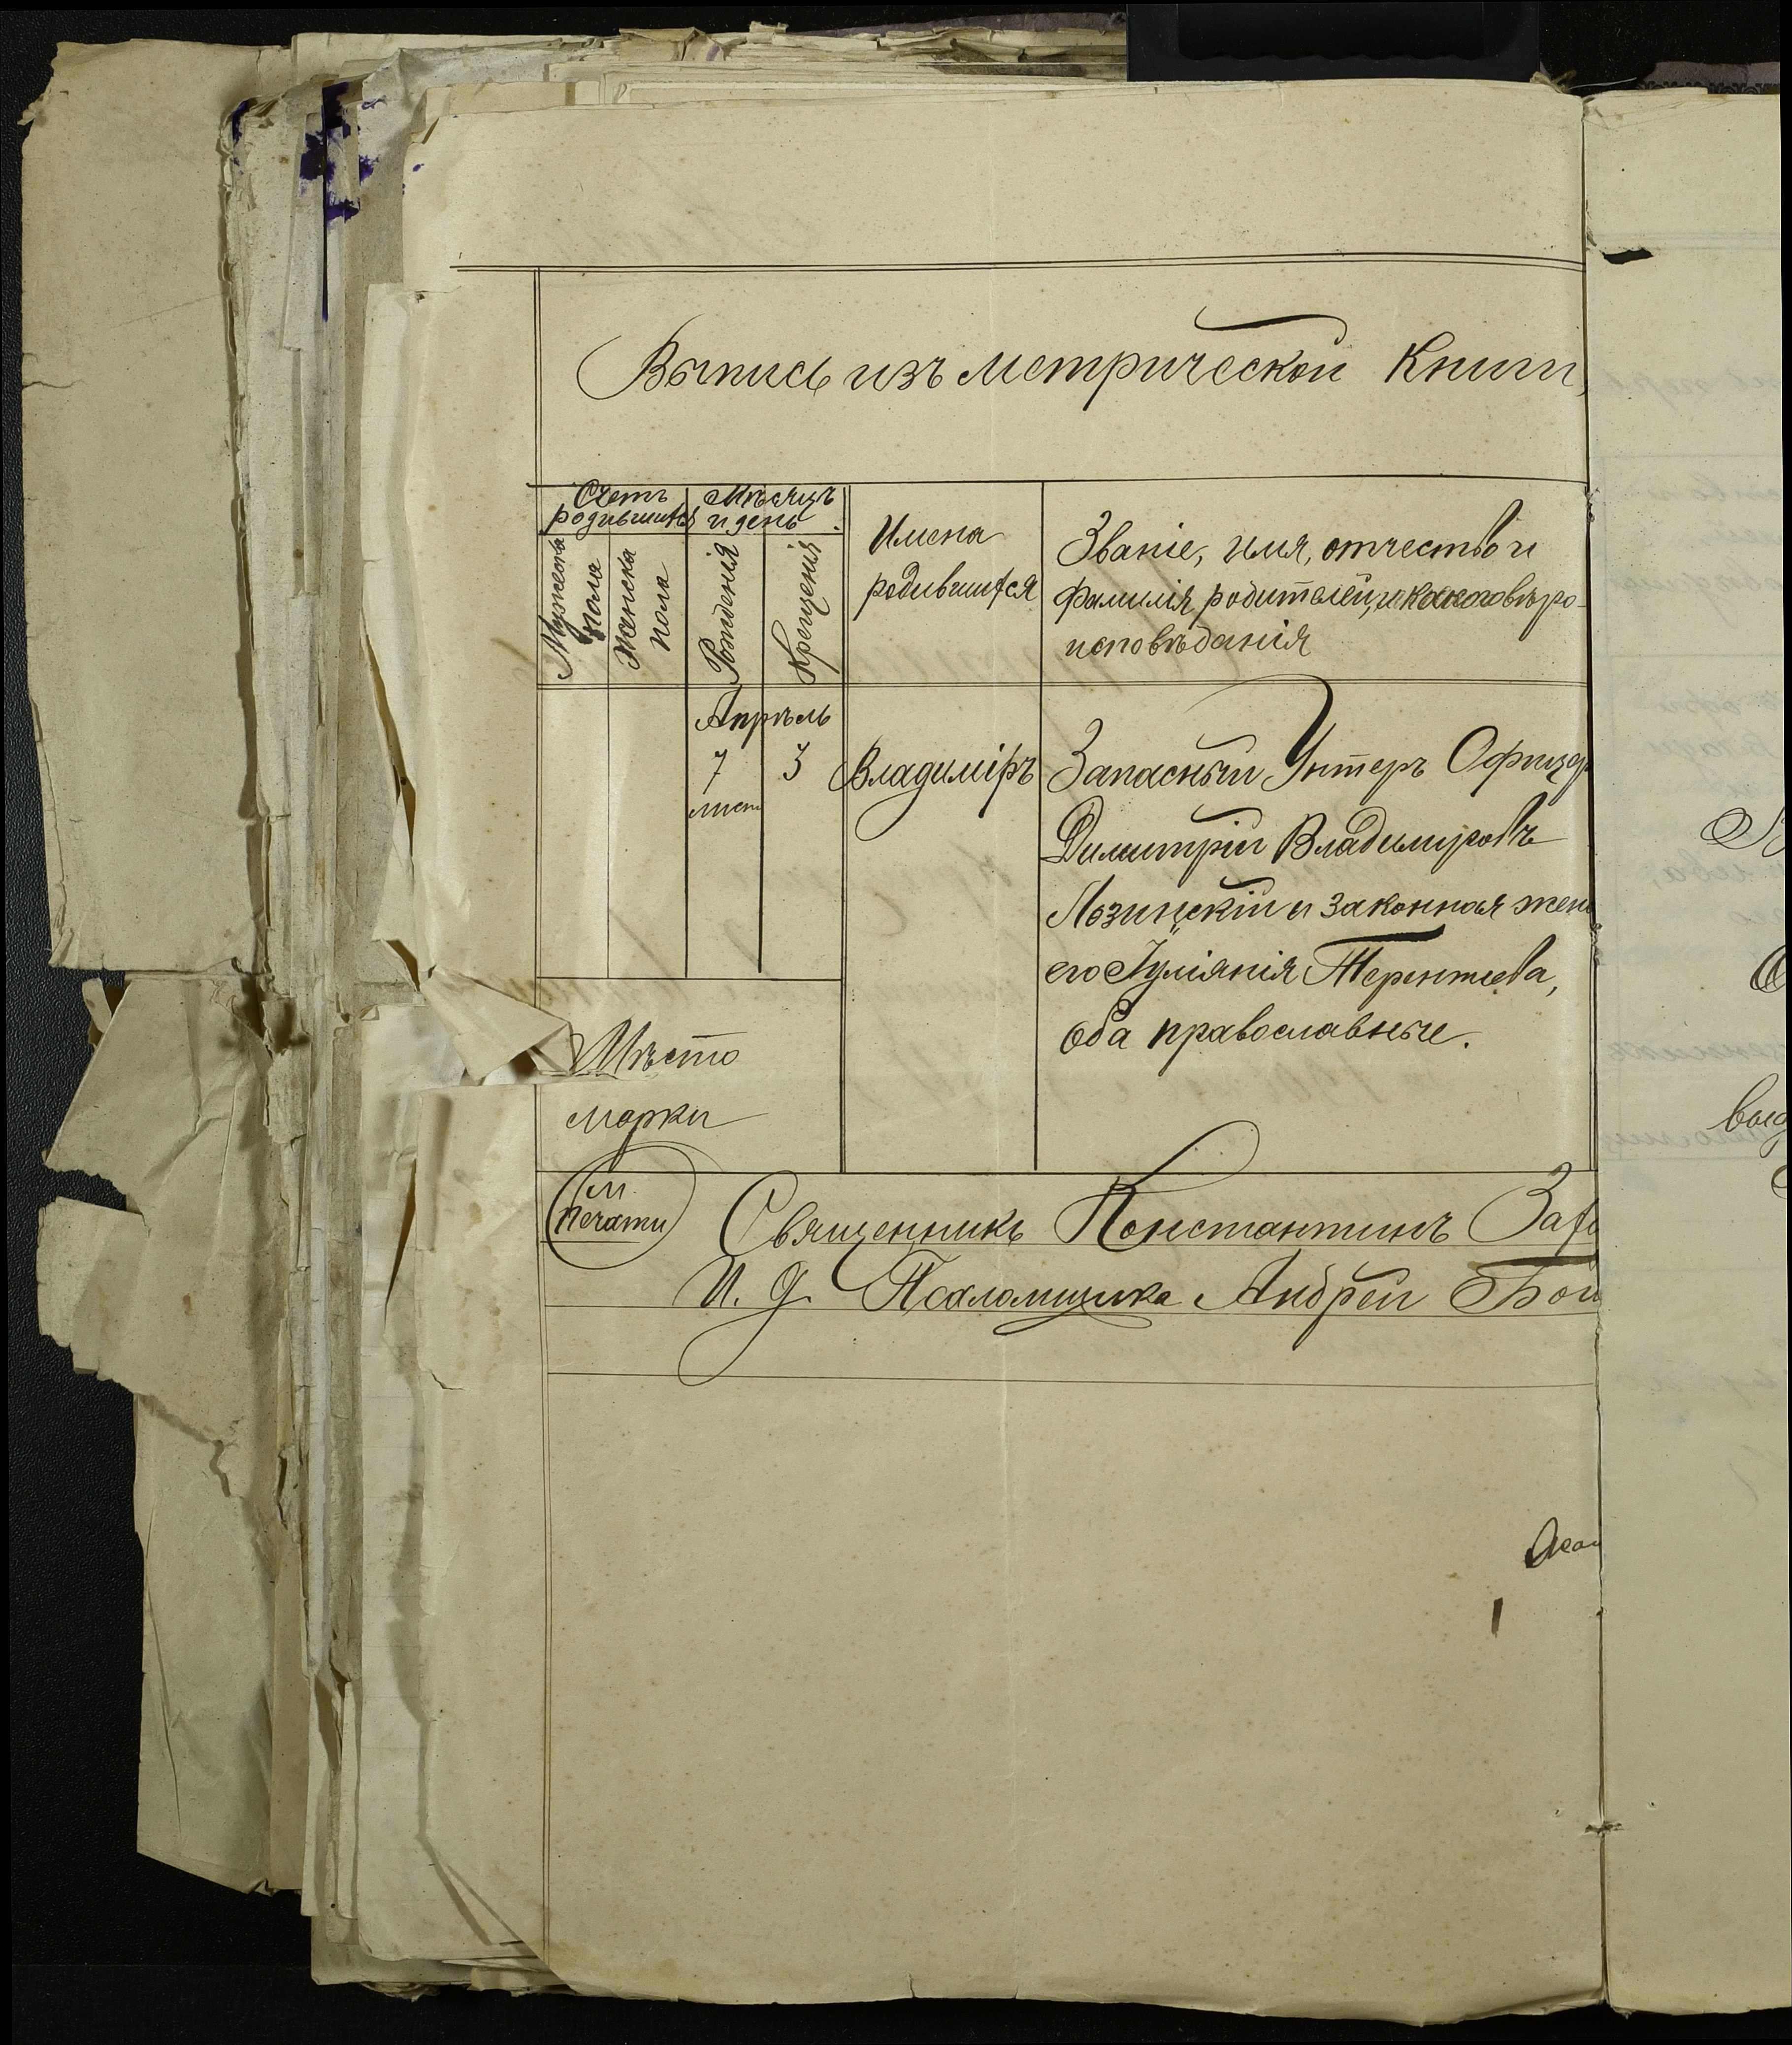 Выпись изъ метрической Книги,
Счетъ
родившихся
Мѣсяцъ
и день
Мужеска
пола
Женска
пола
Рожденія
Крещенія
Имена
родившихся
Званіе, имя, отчество и
фамилія родителей, и какого вѣро-
исповѣданія
Апрѣль
7 3
Владиміръ
Запасный Унтеръ Офицер
Димитрій Владимировъ
Лозинскій и законная жена
его Іуліянія Терентиева,
оба православные.
Мѣсто
марки
М.
Печати
Священникъ Константинъ Зах
И. д. Псаломщика Андрей Бой
выд